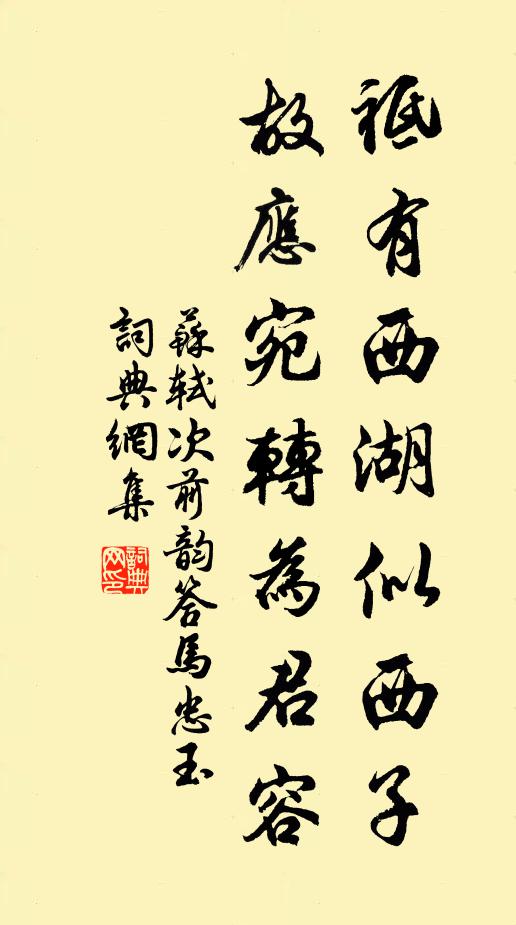 祗有西湖似西子
故應宛轉為君容
蘇軾次前韵答馬忠玉
詞典網集
詞典网印